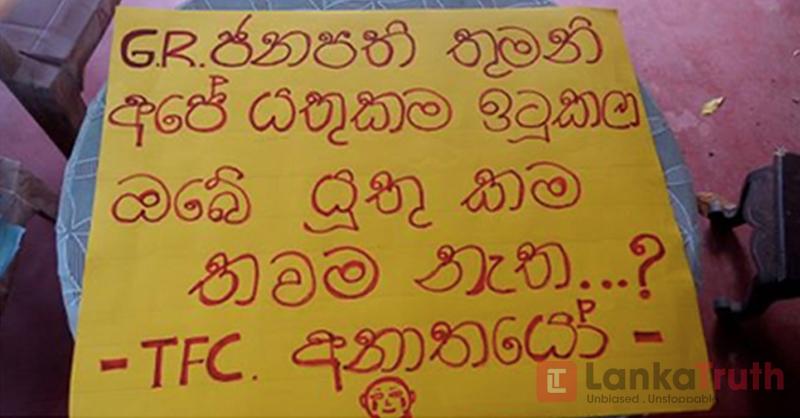 G.R. ජනපති තුමනි
අපේ යතුකම ඉටුකලා
ඔබේ යුතු කම
තවම නැත...?
- TFC. අනාතයෝ -
LT LankaTruth
Unbiased . Unstoppable